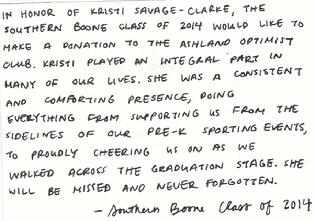 IN HONOR OF KRISTI SAVAGE-CLARKE, THE
SOUTHERN BOONE CLASS OF 2014 WOULD LIKE TO
MAKE A DONATION TO THE ASHLAND OPTIMIST
CLUB. KRISTI PLAYED AN INTEGRAL PART IN
MANY OF OUR LIVES. SHE WAS A CONSISTENT
AND COMFORTING PRESENCE, DOING
EVERYTHING FROM SUPPORTING US FROM THE
SIDELINES OF OUR PRE-K SPORTING EVENTS,
TO PROUDLY CHEERING US ON AS WE
WALKED ACROSS THE GRADUATION STAGE. SHE
WILL BE MISSED AND NEVER FORGOTTEN.
- Southern Boone Class of 2014